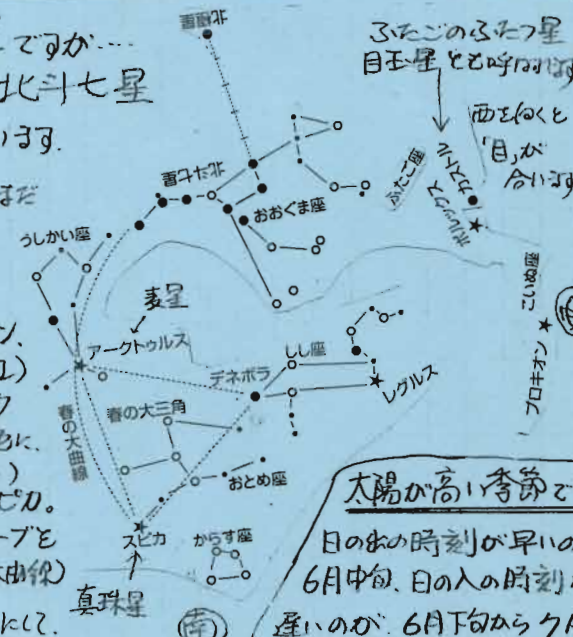 ですが....
北斗七星
います.
まだ
ン、
ク
色に、
ピカ。
ーブを
大曲線)
にして.
北極星
北斗七星
おおぐま座
うしかい座
麦星
アークトゥルス
デネボラ
しし座
レグルス
春の大三角
春の大曲線
おとめ座
スピカ
からす座
真珠星
南
ふたごのふたつ星
目玉星とも呼ばれます
西を向くと
「目」が
合います
ふたご座
カストル
ポルックス
こいぬ座
プロキオン
西
太陽が高い季節で
日の出の時刻が早いの
6月中旬、日の入の時刻
遅いのが、6月下旬から7月